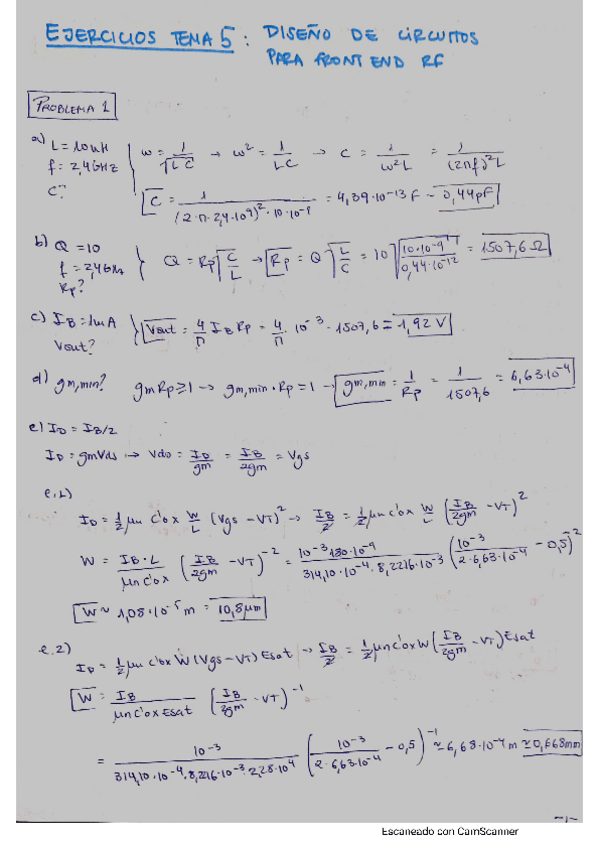 EJERCICIOS TEMA 5: DISEÑO DE CIRCUITOS
PARA FRONT END RF
PROBLEMA 1
a) L = 10 nH
f = 2,4 GHz
C?
ω = 1/√(LC) → ω² = 1/(LC) → C = 1/(ω²L) = 1/((2πf)²L)
C = 1/((2·π·2,4·10⁹)²·10·10⁻⁹) = 4,39·10⁻¹³ F = 0,44 pF
b) Q = 10
f = 2,4 GHz
Rp?
Q = Rp√(C/L) → Rp = Q√(L/C) = 10√(10·10⁻⁹/0,44·10⁻¹²) = 1507,6 Ω
c) IB = 1mA
Vout?
Vout = 4/π IB Rp = 4/π · 10⁻³ · 1507,6 = 1,92 V
d) gm,min? gmRp ≥ 1 → gm,min · Rp = 1 → gm,min = 1/Rp = 1/1507,6 = 6,63·10⁻⁴
e) ID = IB/2
ID = gmVds → Vdo = ID/gm = IB/2gm = Vgs
e.1)
ID = 1/2 μn C'ox W/L (Vgs − VT)² → IB/2 = 1/2 μn C'ox W/L (IB/2gm − VT)²
W = IB·L/μnC'ox (IB/2gm − VT)⁻² = 10⁻³·180·10⁻⁹/314,10·10⁻⁴·8,2216·10⁻³ (10⁻³/2·6,63·10⁻⁴ − 0,5)⁻²
W ≈ 1,08·10⁻⁵ m = 10,8 μm
e.2)
ID = 1/2 μn C'ox W (Vgs − VT) Esat → IB/2 = 1/2 μn C'ox W (IB/2gm − VT) Esat
W = IB/μn C'ox Esat (IB/2gm − VT)⁻¹
= 10⁻³/314,10·10⁻⁴·8,216·10⁻³·2,28·10⁴ (10⁻³/2·6,63·10⁻⁴ − 0,5)⁻¹ ≃ 6,68·10⁻⁴ m ≃ 0,668mm
-1-
Escaneado con CamScanner